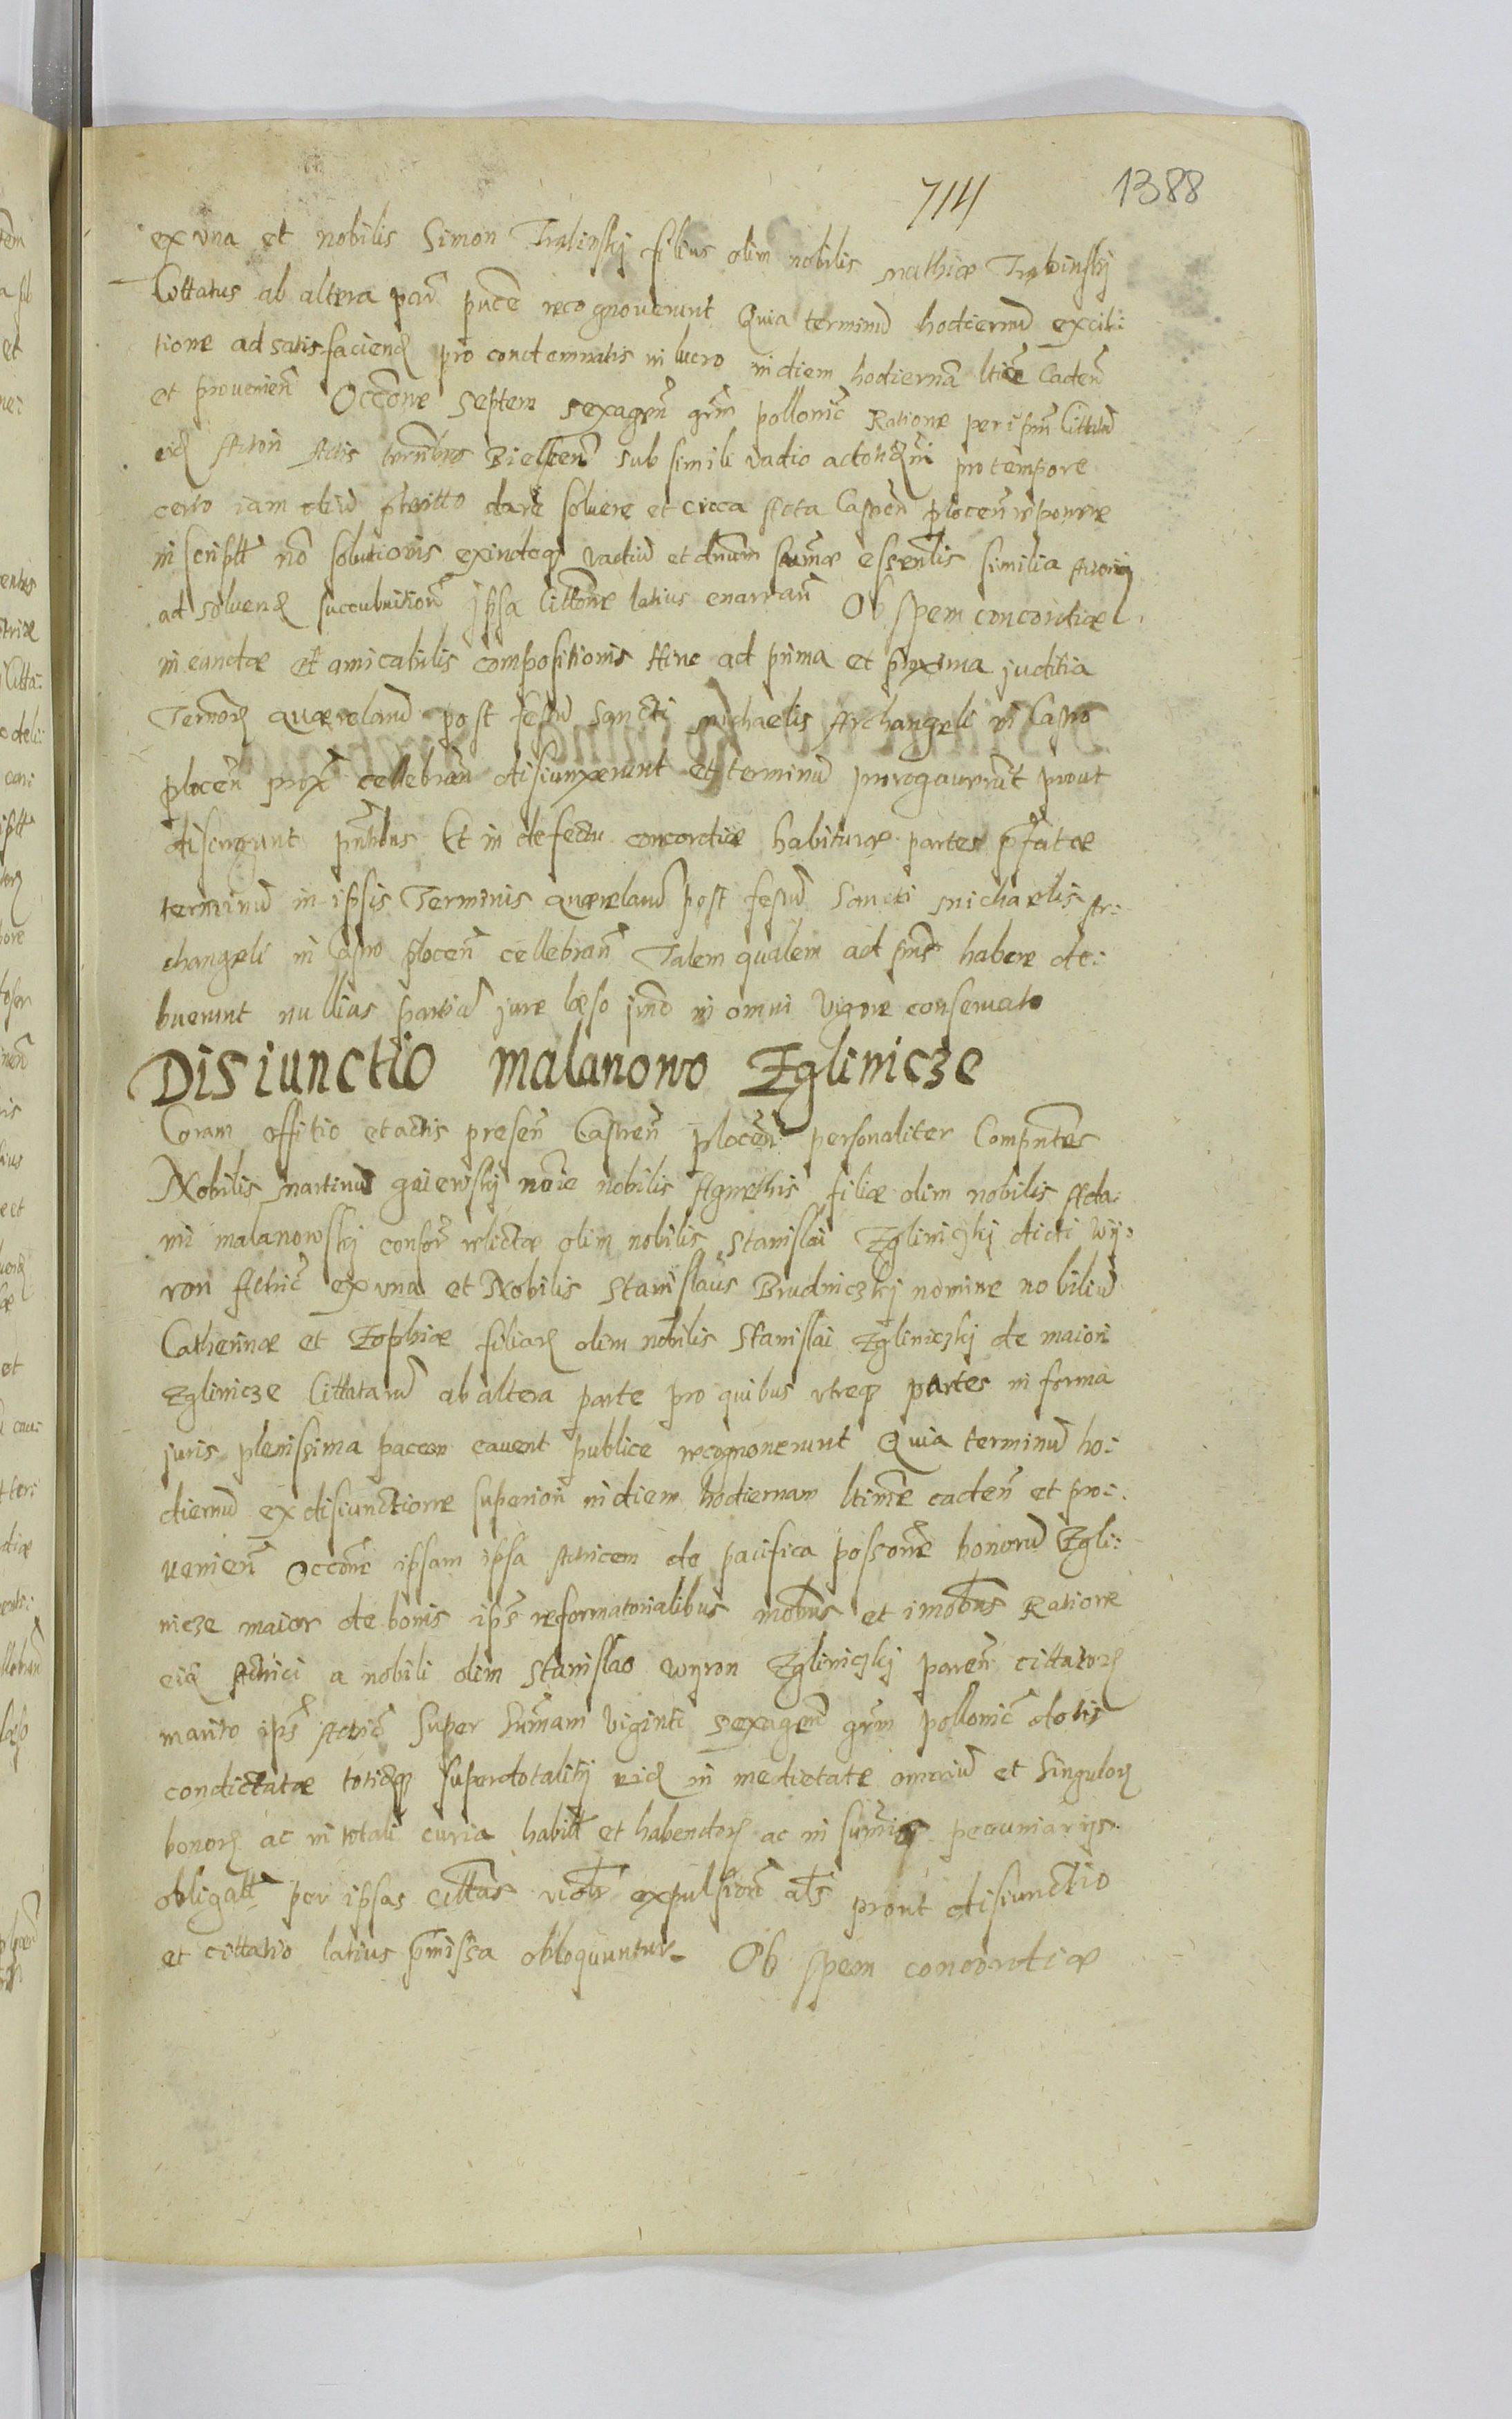 714 1388
ex vna et nobilis Simon Trębinskj filius olim nobilis Mathiæ Trębinskj
Cittatus ab altera par̃ pu̇ce recognouerunt Quia terminu hodiernu ex citi:
tione ad satisfaciend pro condemnatis in lucro in diem hodierna ltie Caden̄
et prouenien̄ Occone septem sexagen̄ grm̄ pollonic̄ Ratione per ipsu̅ Cittatu
eid Actori Actis terribus Bielscen̄ sub simili vadio pro tempore
certo iam diu pteritto dare soluere et circa Acta Castren̄ plocen̄ reponere
inscriptt no̅ solutionis exindeq̨ vadiu et dnum summæ essentlis similia Actorij
ad soluend succubuition̄ Ipsa Cittone latius enarran̄ Ob spem concordiæ
ineundæ et amicabilis compositionis Hinc ad prima et proxima juditia
Termorͫ quærelaru post festu Sancti Michaelis Archangeli in Castro
plocen̄ prox̄ cellebran̄ disiunxerunt et terminu prorogauerunt prout
disiungunt pntibus Et in defectu concordiæ habituræ partes pfatæ
terminu in ipsis Terminis quærelaru post festu Sancti Michaelis Ar:
changeli in Castro plocen̄ cellebran̄ Talem qualem ad pns habere de:
buerunt nullius partiu jure læso imo in omni vigore conseruato
Disiunctio Malanowo Zglinicze
Coram offitio et actis presen̄ Castren̄ plocen̄ personaliter Compntes
Nobilis Martinus gaiewskj noīe nobilis Agnethis filiæ olim nobilis Ada:
mi malanowskj consor̄ relictæ olim nobilis Stanislai Zgliniczkj dicti wy:
ron Actric̄ ex vna et Nobilis Stanislaus Brudniczkj nomine nobiliu
Catherinæ et Zophiæ filiarͫ olim nobilis Stanislai Zgliniczkj de maiori
Zglinicze Cittataru ab altera parte pro quibus vtreq̨ partes in forma
juris plenissima pacem cauent publice recognouerunt Quia terminu ho:
diernu ex disiunctione superiori in diem hodiernam ltime caden̄ et pro:
uenien̄ Occone ipsam ipsa Actricem de pacifica possone bonoru Zgli:
nicze maior de bonis ips̄ reformatorialibus mobus et imobus Ratione
eid Actrici a nobili olim Stanislao wyron Zgliniczkj paren̄ cittatorͫ
marito ips̄ Actric̄ super summam viginti sexagen̄ grm̄ pollonic̄ dotis
condictatæ totidq̨ superdotalitij eid in medietate omniu et singulorͫ
bonorͫ ac in totali curia habitt et habendorͫ ac in summis pecuniarijs
obligatt per ipsas cittatas violtr expulsion̄ als prout disiunctio
et cittatio latius pmissa obloquuntur Ob spem concordiæ